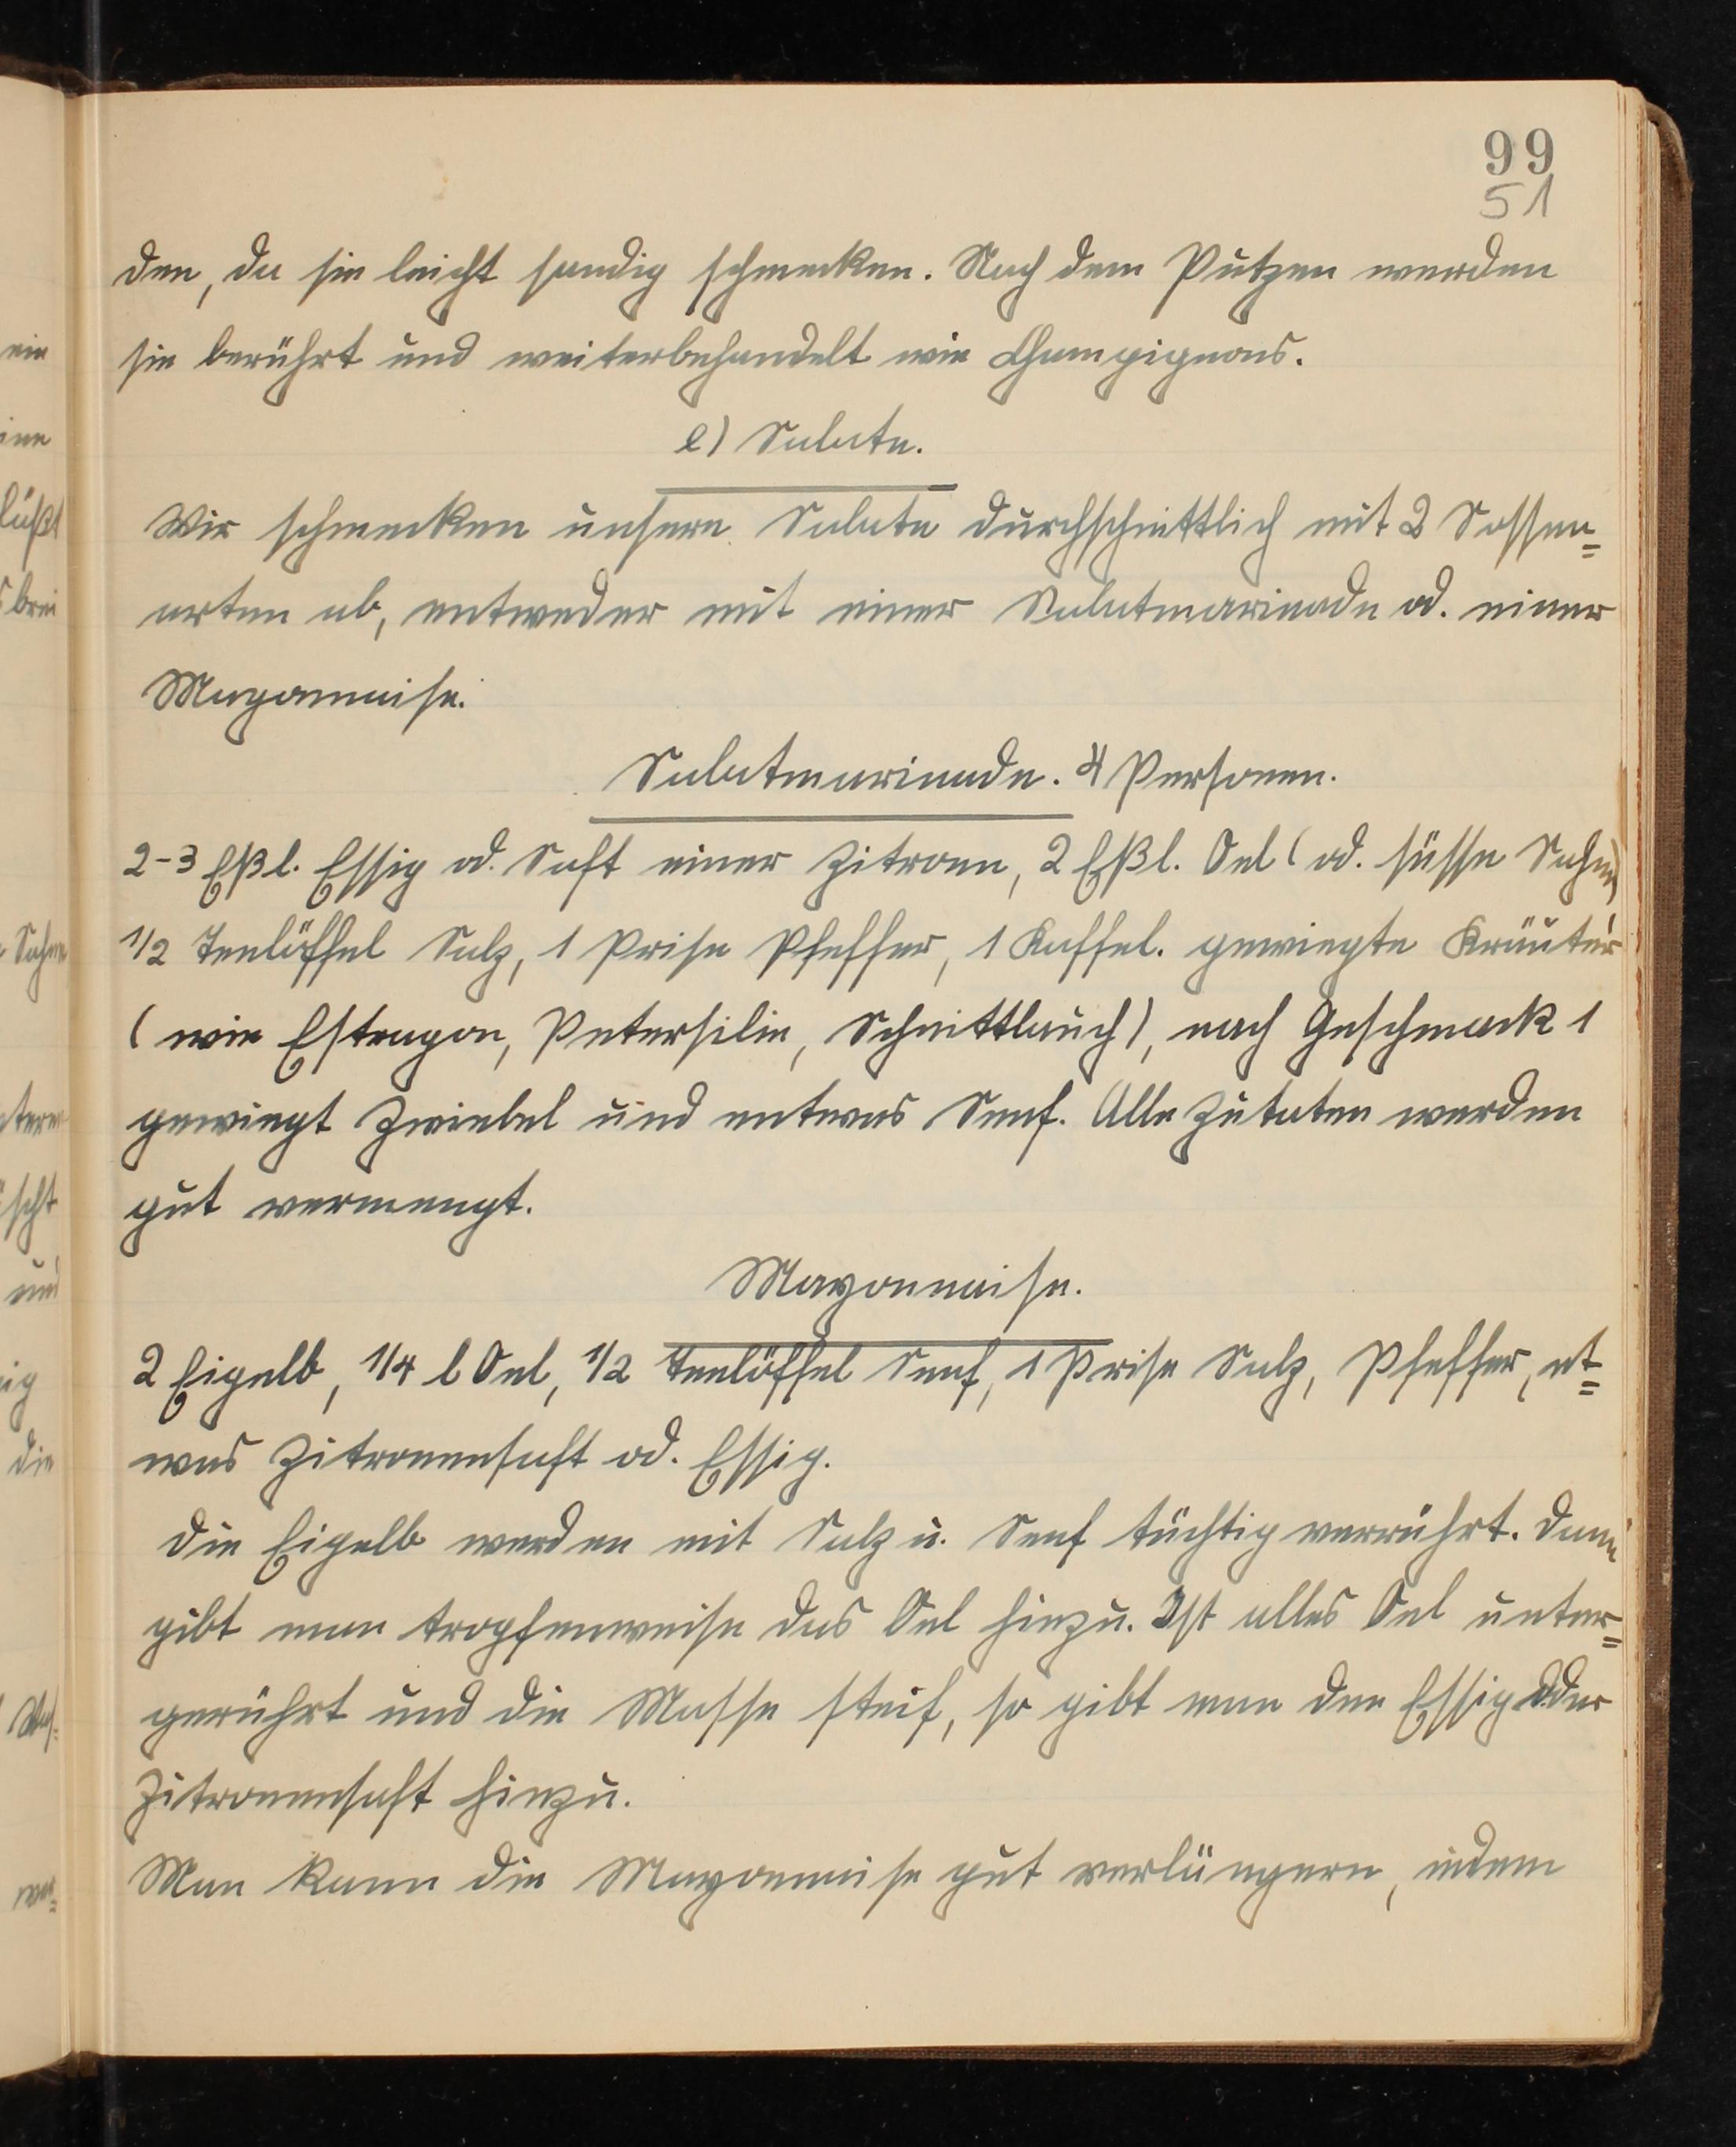 99
51
den, da sie leicht sandig schmecken. Nach dem Putzen werden
sie berührt und weiterbehandelt wie Champignons.
e) Salate.
Wir schmecken unsere Salate durchschnittlich mit 2 Sossen=
arten ab, entweder mit einer Salatmarinade od. einer
Mayonnaise.
Salatmarinade. 4 Personen.
2-3 Eßl. Essig od. Saft einer Zitrone, 2 Eßl. Oel (od. süsse Sahne)
1/2 Teelöffel Salz, 1 Prise Pfeffer, 1 Kaffel. gewiegte Kräuter
(wie Estragon, Petersilie, Schnittlauch), nach Geschmack 1
gewiegt Zwiebel und entwas Senf. Alle Zutaten werden
gut vermengt.
Mayonnaise.
2 Eigelb, 1/4 l Oel, 1/2 Teelöffel Senf, 1 Prise Salz, Pfeffer, et=
was Zitronensaft od. Essig.
Die Eigelb werden mit Salz u. Senf tüchtig verrührt. Dann
gibt man tropfenweise das Oel hinzu. Ist alles Oel unter=
gerührt und die Masse steif, so gibt man den Essig oder
Zitronensaft hinzu.
Man kann die Mayonnaise gut verlängern, indem
ein
eine
läßt
brei
Sahne
und
die